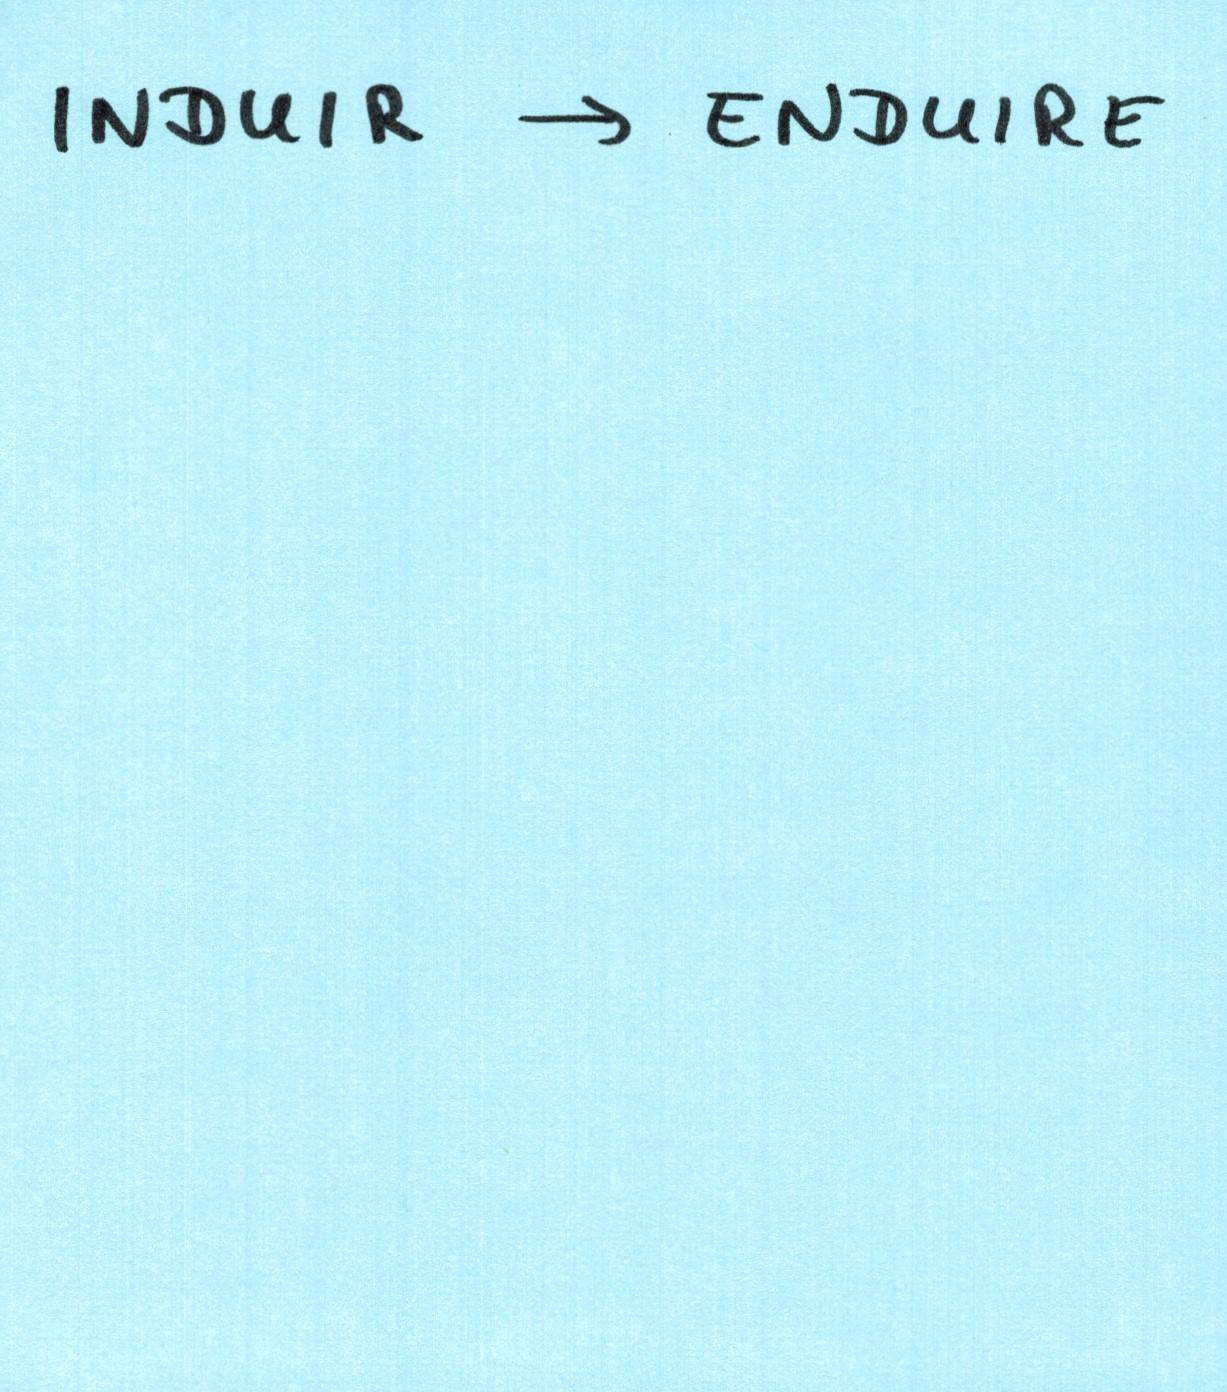 INDUIR → ENDUIRE